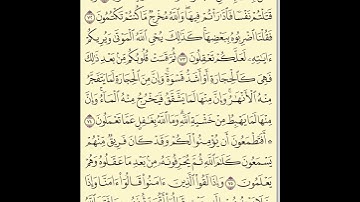 قَتَلۡتُمۡ نَفۡسٗا فَٱدَّٰرَٰٔتُمۡ فِيهَاۖ وَٱللَّهُ مُخۡرِجٞ مَّا كُنتُمۡ تَكۡتُمُونَ ٧٢
فَقُلۡنَا ٱضۡرِبُوهُ بِبَعۡضِهَاۚ كَذَٰلِكَ يُحۡيِ ٱللَّهُ ٱلۡمَوۡتَىٰ وَيُرِيكُمۡ
ءَايَٰتِهِۦ لَعَلَّكُمۡ تَعۡقِلُونَ ٧٣ ثُمَّ قَسَتۡ قُلُوبُكُم مِّنۢ بَعۡدِ ذَٰلِكَ
فَهِيَ كَٱلۡحِجَارَةِ أَوۡ أَشَدُّ قَسۡوَةٗۚ وَإِنَّ مِنَ ٱلۡحِجَارَةِ لَمَا يَتَفَجَّرُ
مِنۡهُ ٱلۡأَنۡهَٰرُۚ وَإِنَّ مِنۡهَا لَمَا يَشَّقَّقُ فَيَخۡرُجُ مِنۡهُ ٱلۡمَآءُۚ وَإِنَّ
مِنۡهَا لَمَا يَهۡبِطُ مِنۡ خَشۡيَةِ ٱللَّهِۗ وَمَا ٱللَّهُ بِغَٰفِلٍ عَمَّا تَعۡمَلُونَ ٧٤
۞ أَفَتَطۡمَعُونَ أَن يُؤۡمِنُواْ لَكُمۡ وَقَدۡ كَانَ فَرِيقٞ مِّنۡهُمۡ
يَسۡمَعُونَ كَلَٰمَ ٱللَّهِ ثُمَّ يُحَرِّفُونَهُۥ مِنۢ بَعۡدِ مَا عَقَلُوهُ وَهُمۡ
يَعۡلَمُونَ ٧٥ وَإِذَا لَقُواْ ٱلَّذِينَ ءَامَنُواْ قَالُوٓاْ ءَامَنَّا وَإِذَا